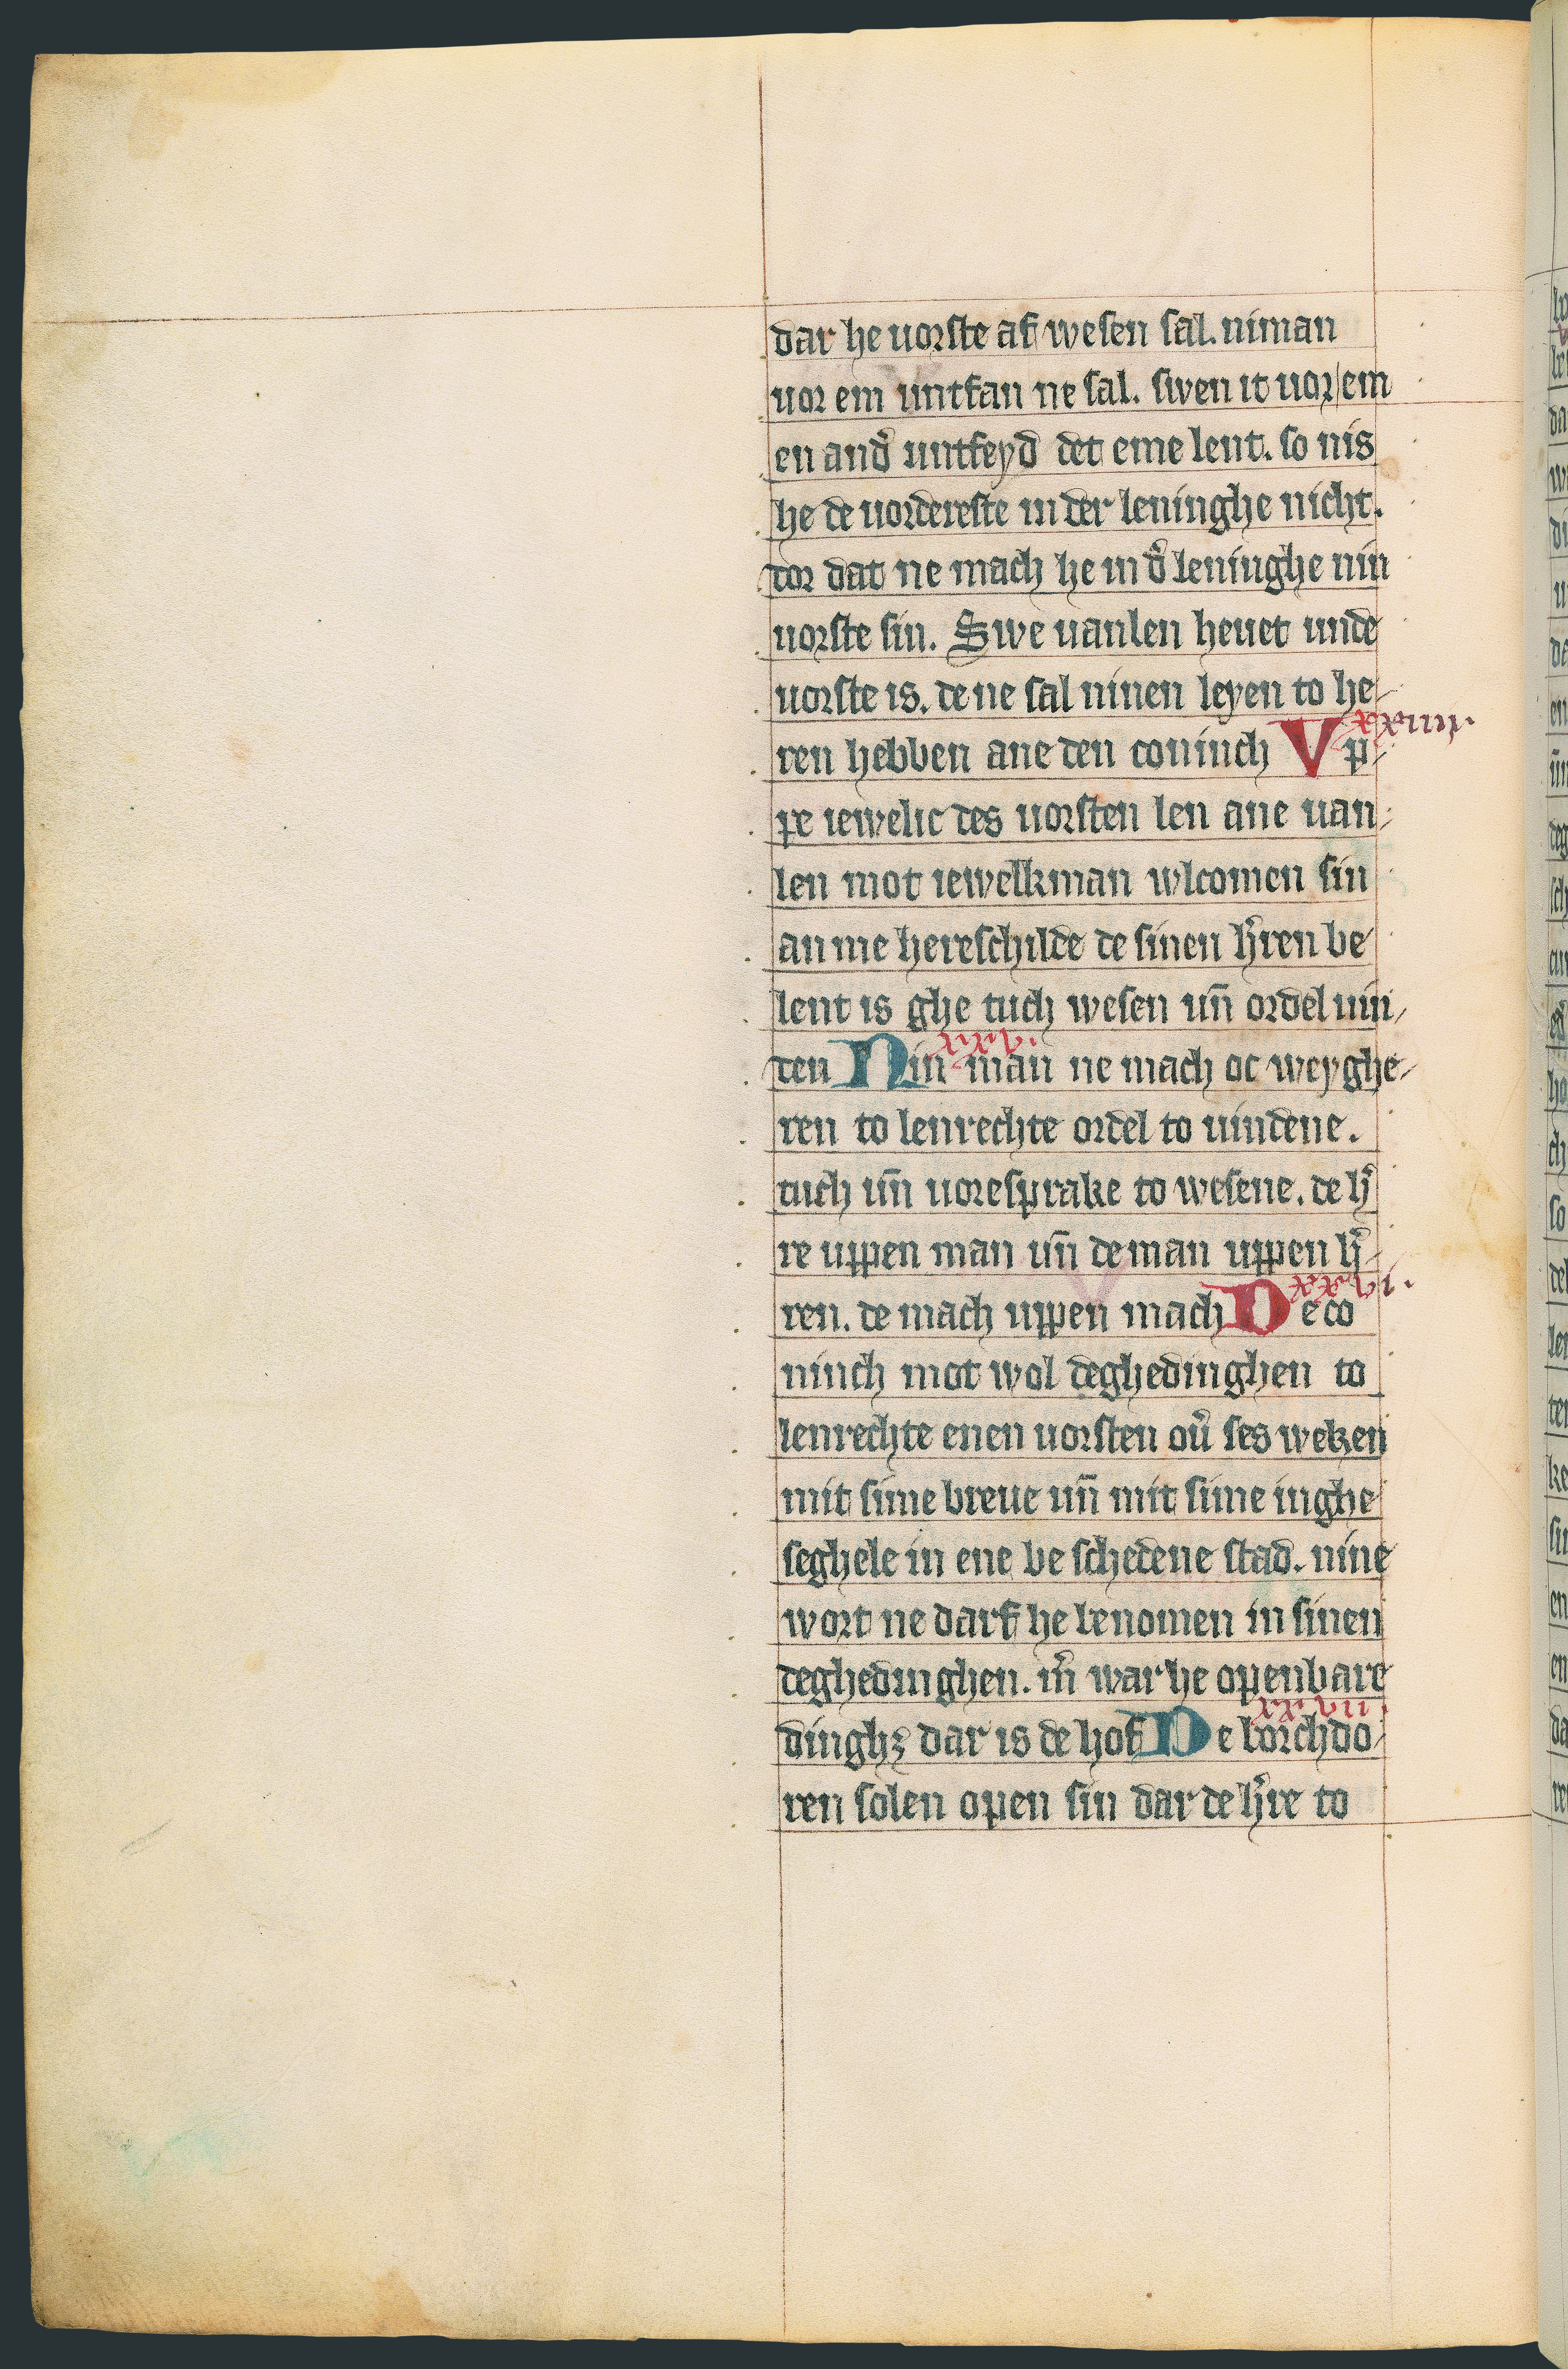 dar he uorste af wesen sal. niman
uor em untfan ne sal. swen it uor em
en and͛ untfeyd det eme lent. so nis
he de uordereste in der leninghe nicht.
dor dat ne mach he in d͛ leninghe nin
uorste sin. Swe uanlen heuet unde
uorste is. de ne sal ninen leyen to he-
ren hebben ane den coninch xxiiii. Vp-
pe iewelic des uorsten len ane uan-
len mot iewelkman wlcomen sin
an me hereschilde de sinen h͛ren be
lent is ghe tuch wesen un̄ ordel uin-
den xxv. Nin man ne mach oc weyghe-
ren to lenrechte ordel to uindene.
tuch un̄ uoresprake to wesene. de h͛
re uppen man un̄ de man uppen h͛-
ren. de mach uppen mach xxvi. De co
ninch mot wol deghedinghen to
lenrechte enen uorsten ou͛ ses weken
mit sime breue un̄ mit sime inghe
seghele in ene be schedene stad. nine
wort ne darf he benomen in sinen
deghedinghen. m͛ war he openbare
dinghꝫ dar is de hof xxvii. De borchdo-
ren solen open sin dar de h͛re to